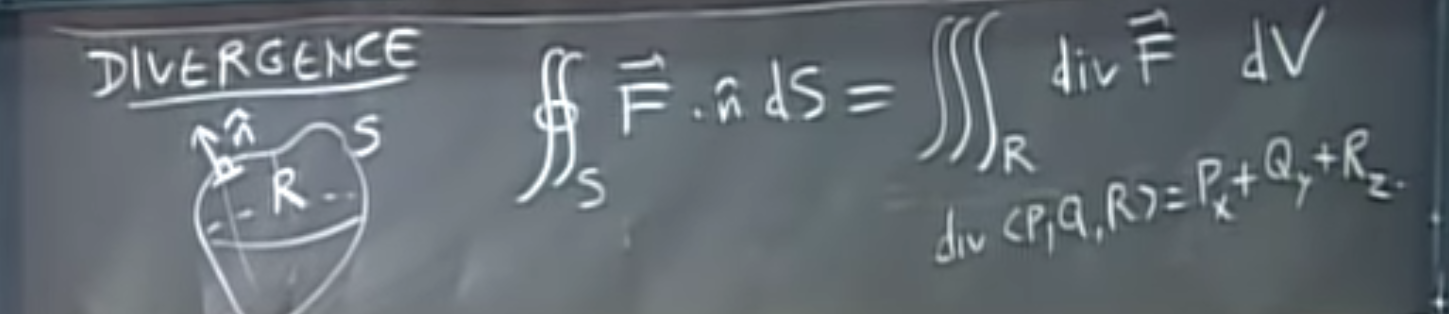 DIVERGENCE
∯_S F⃗ · n̂ dS = ∭_R div F⃗ dV
n̂ S
R
div ⟨P,Q,R⟩ = P_x + Q_y + R_z.